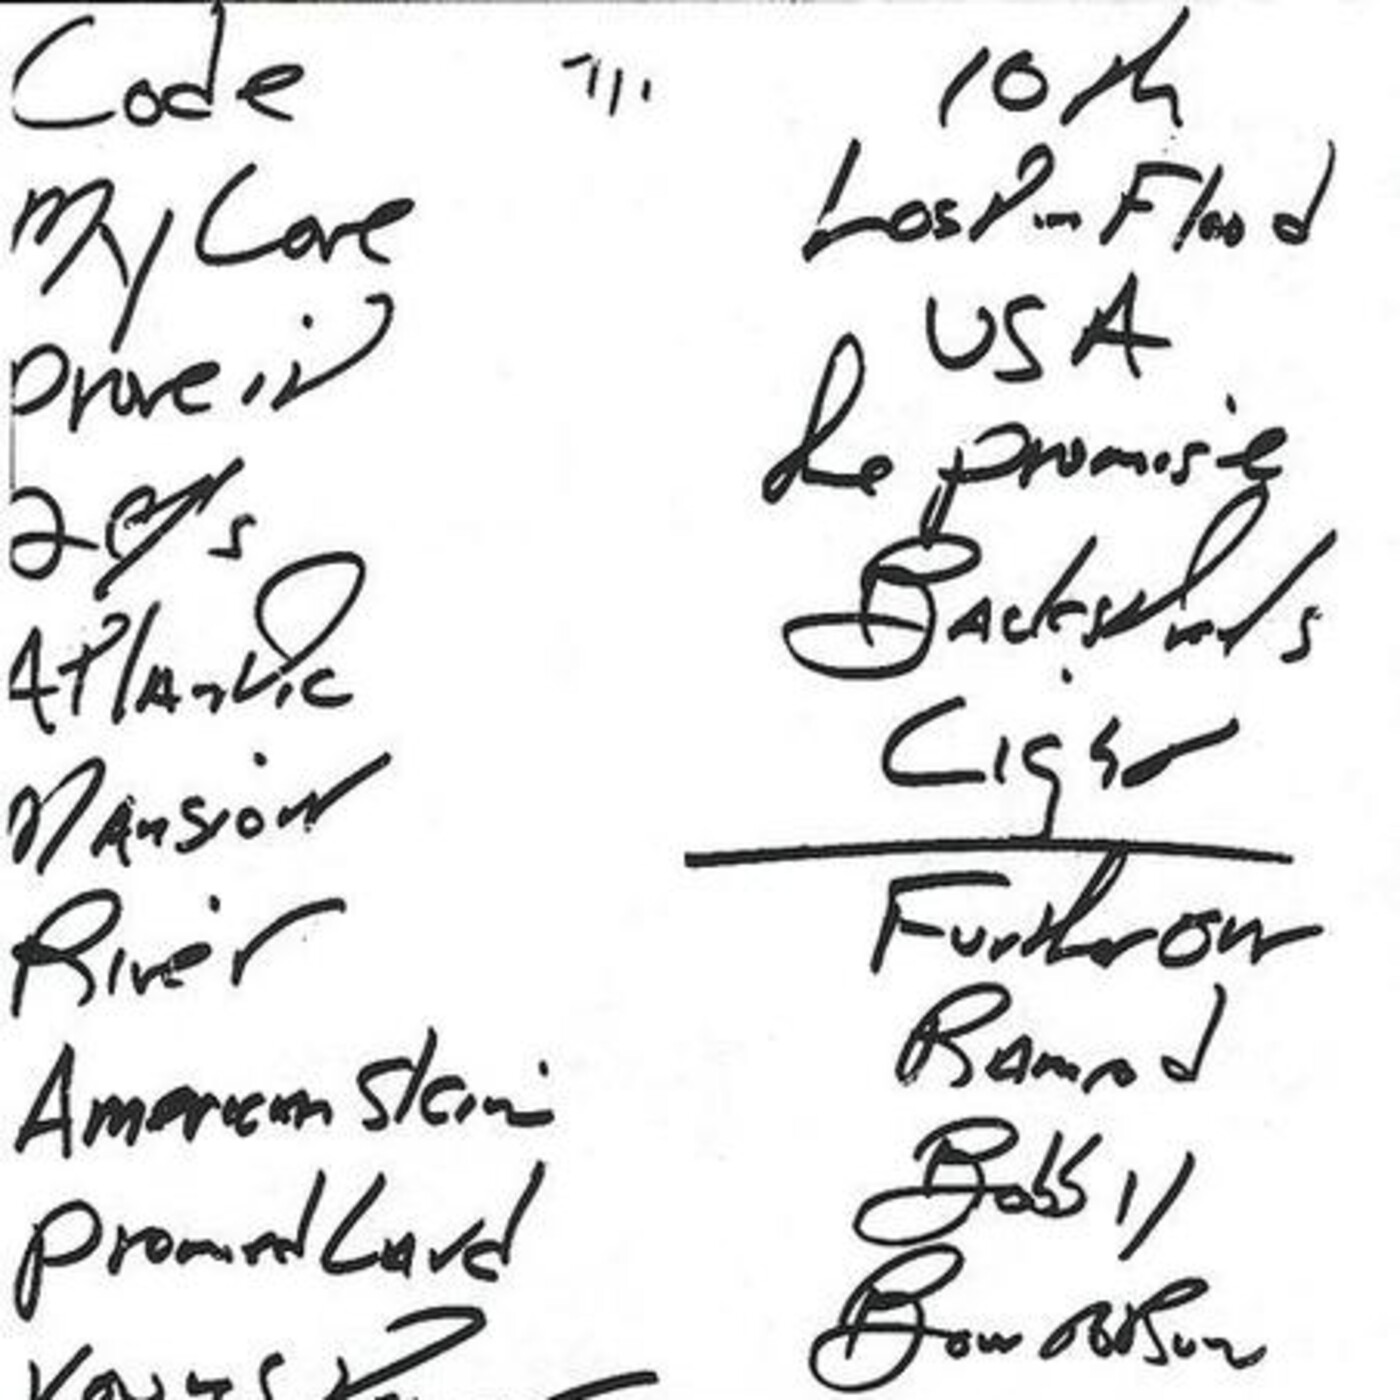 Code
My Love
Prove it
2 ♥'s
Atlantic
Mansion
River
American Skin
Promised Land
Youngs
10th
Lost in Flood
USA
The promise
Backstreets
Light
Further On
Ramrod
Bobby
Born to Run